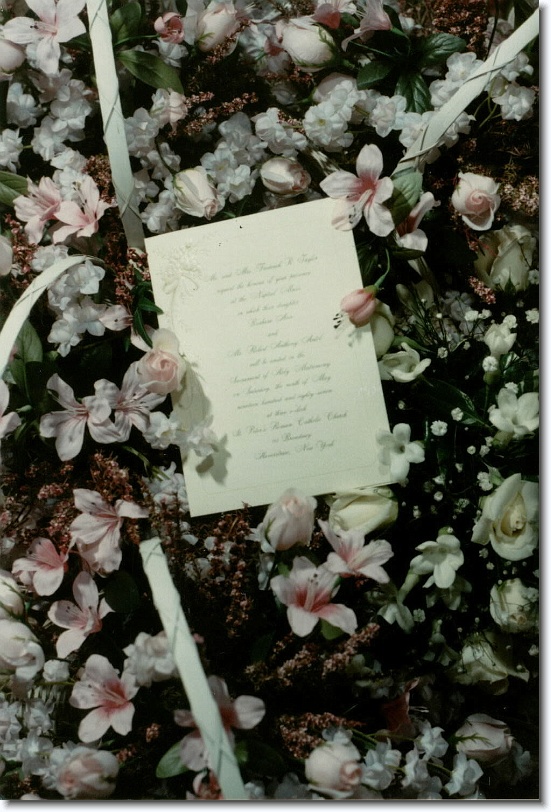 Mr. and Mrs. Frederick G. Taylor
request the honour of your presence
at the Nuptial Mass
in which their daughter
and
Mr. Robert Anthony
will be united in the
Sacrament of Holy Matrimony
on Saturday, the ninth of May
nineteen hundred and eighty seven
at three o'clock
St. Roman Catholic Church
New York